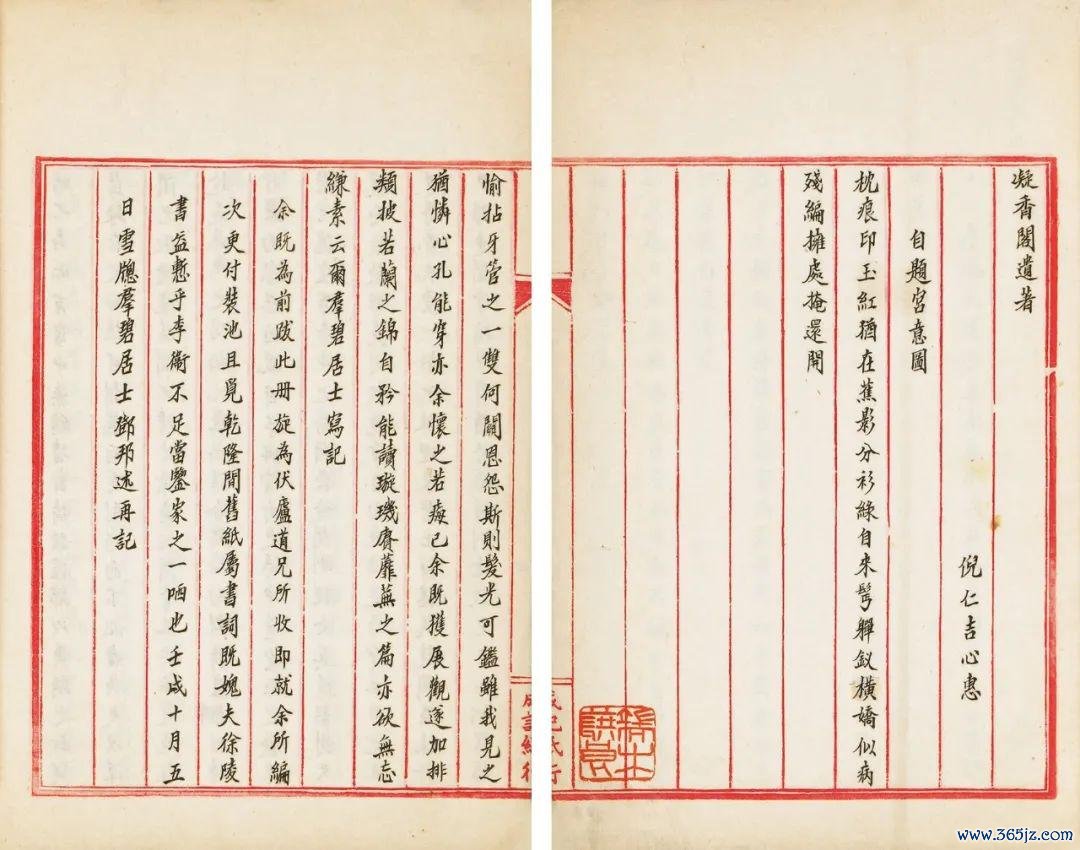 凝香閣遺著
倪仁吉心惠
自題宮意圖
枕痕印玉紅猶在蕉影分衫綠自来鬌軃釵橫嬌似病
殘編擁處掩還開
愉拈牙管之一雙何關恩怨斯則髮光可鑑雖我見之
猶憐心孔能穿亦余懷之若痗已余既獲展觀遂加排
類披若蘭之錦自矜能讀璇璣賡蘼蕪之篇亦欲無忘
縑素云爾羣碧居士寫記
余既為前跋此册旋為伏廬道兄所收即就余所編
次更付裝池且覓乾隆間舊紙屬書詞既媿夫徐陵
書益慙乎李衞不足當鑒家之一哂也壬戌十月五
日雪牕羣碧居士鄧邦述再記
www.365jz.com